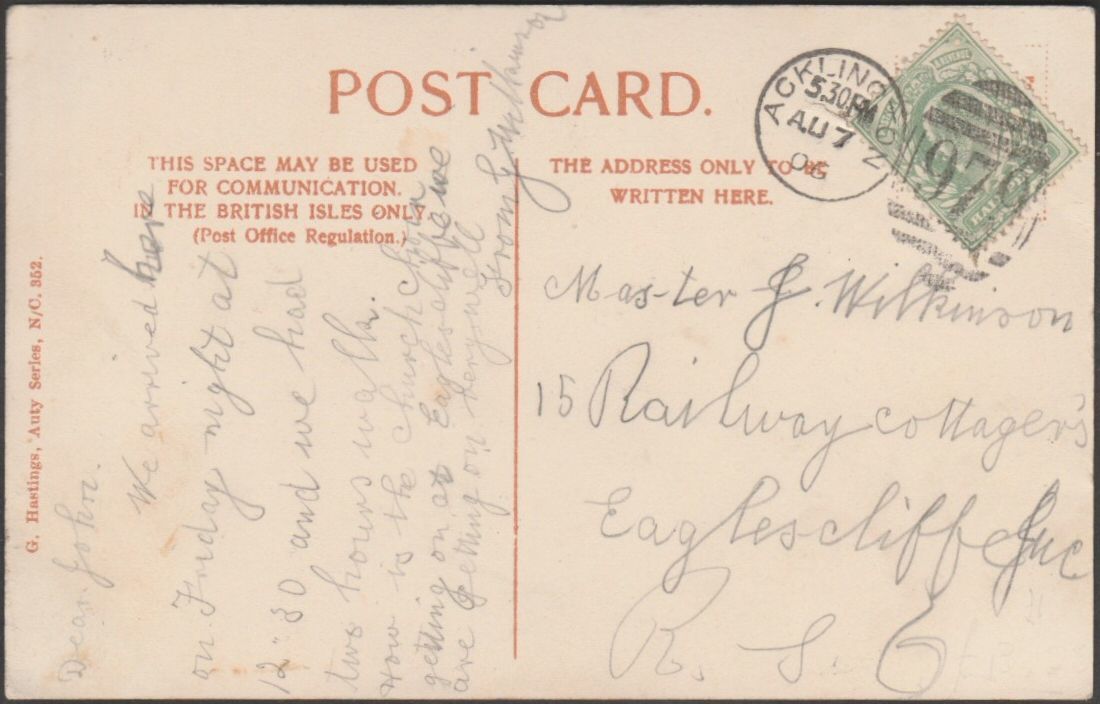 POST CARD.
THIS SPACE MAY BE USED
FOR COMMUNICATION.
IN THE BRITISH ISLES ONLY
(Post Office Regulation.)
THE ADDRESS ONLY TO BE
WRITTEN HERE.
G. Hastings, Auty Series, N/C. 352.
5.30PM
AU 7
06
979
Dear John.
We arrived here
on Friday night at
12"30 and we had
two hours walk.
How is the church choir
getting on at Eaglescliffe we
are getting on very well
from G Wilkinson
Master J. Wilkinson
15 Railway cottager's
Eaglescliffe Junc
R. S. O